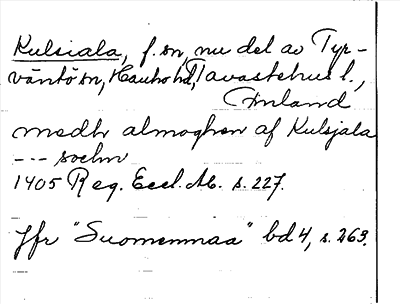 Kulsiala, f. sn, nu del av Tyr-
väntö sn, Hauho hd, Tavastehus l.,
Finland
medh almoghen af Kulsjala
--- sochn
1405 Reg. Eccl. Ab. s. 227.
Jfr "Suomenmaa" bd 4, s. 263.